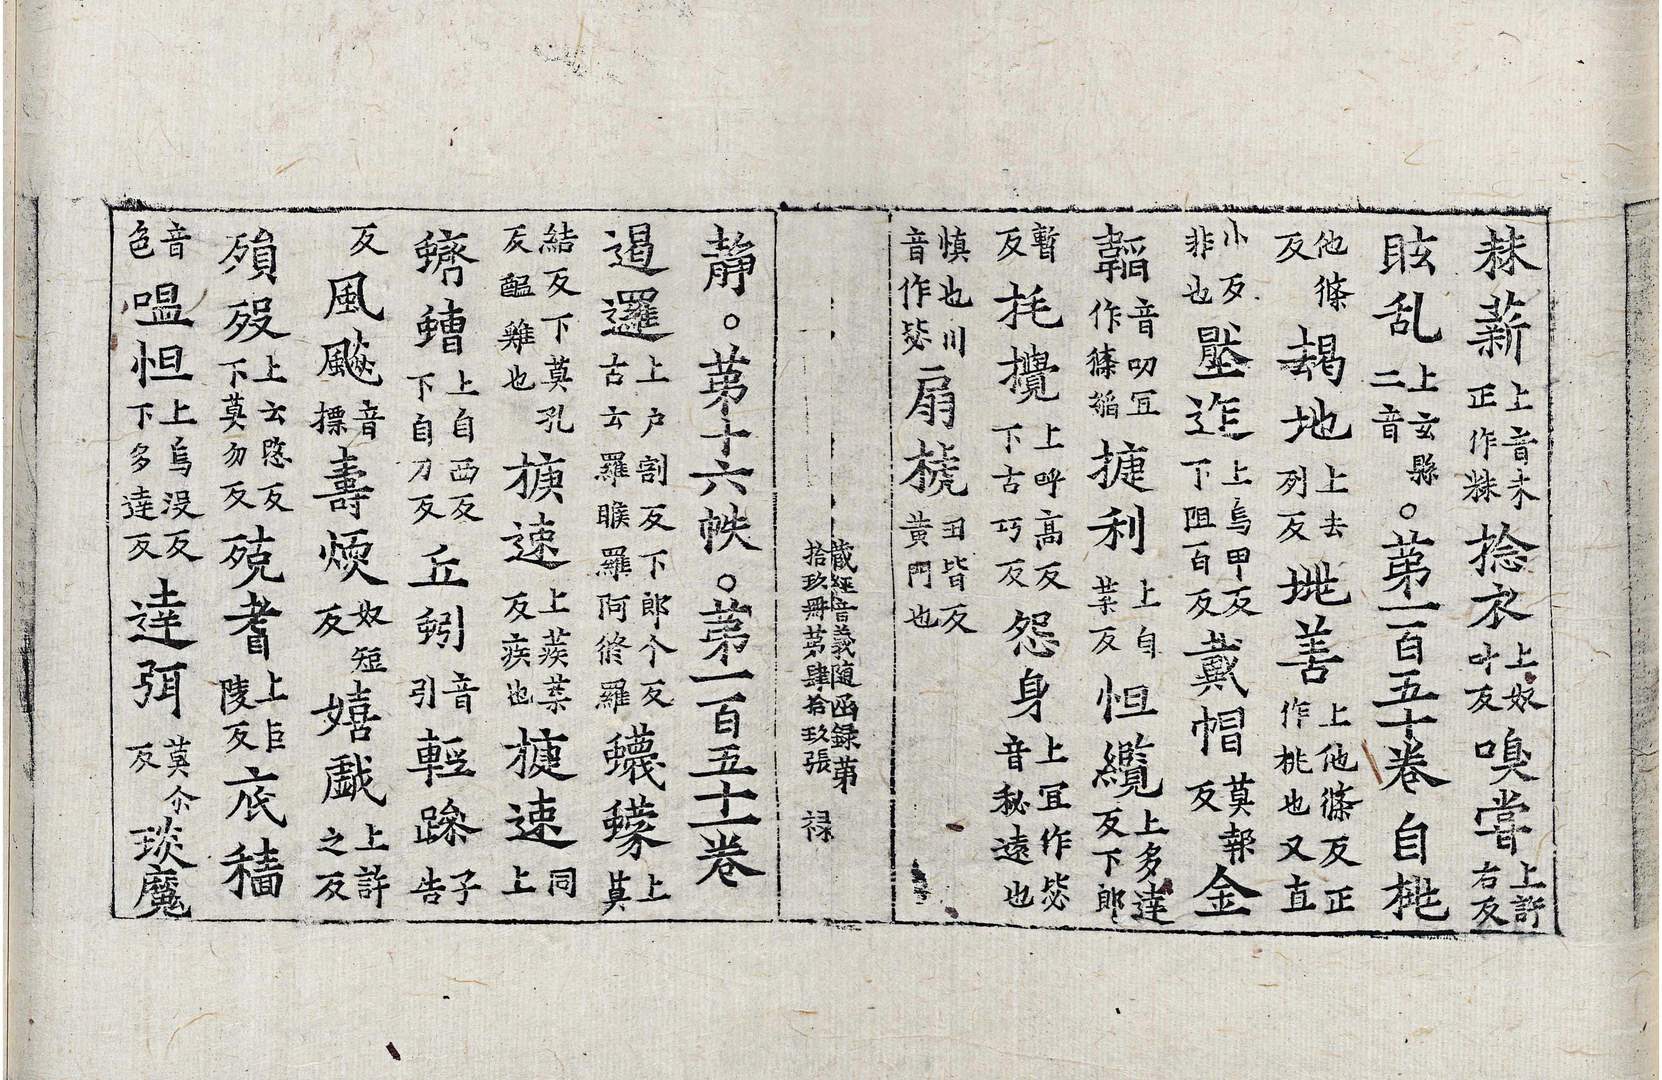 秣薪上音末正作秣捻衣上奴叶反嗅嘗上許右反
眩乱上玄縣二音。苐一百五十卷 自桃
他條反朅地上去列反垗善上他條反正作桃也又直
小反非也壓迮上烏甲反下阻百反戴帽莫報反金
韜音叨冝作絛縚揵利上自葉反怛纜上多達反下郎
暫反㧌攪上呼高反下古巧反怨身上冝作毖音秘遠也
慎也川音作毖扇㧡田皆反黄門也
藏經音義随函録苐拾玖冊苐肆拾玖張 禄
靜。苐十六帙。苐一百五十一卷
遏邏上户割反下郎个反古云羅睺羅阿脩羅蠛蠓上莫
結反下莫孔反醖雞也㨗速上蒺葉反疾也揵速同上
蠐螬上自西反下自刀反丘蚓音引輕躁子告反
風飈音摽壽煗奴短反嬉戱上許之反
殞歿上云愍反下莫勿反殑耆上巨陵反㡳穡
音色嗢怛上烏没反下多達反達弭莫尒反琰魔